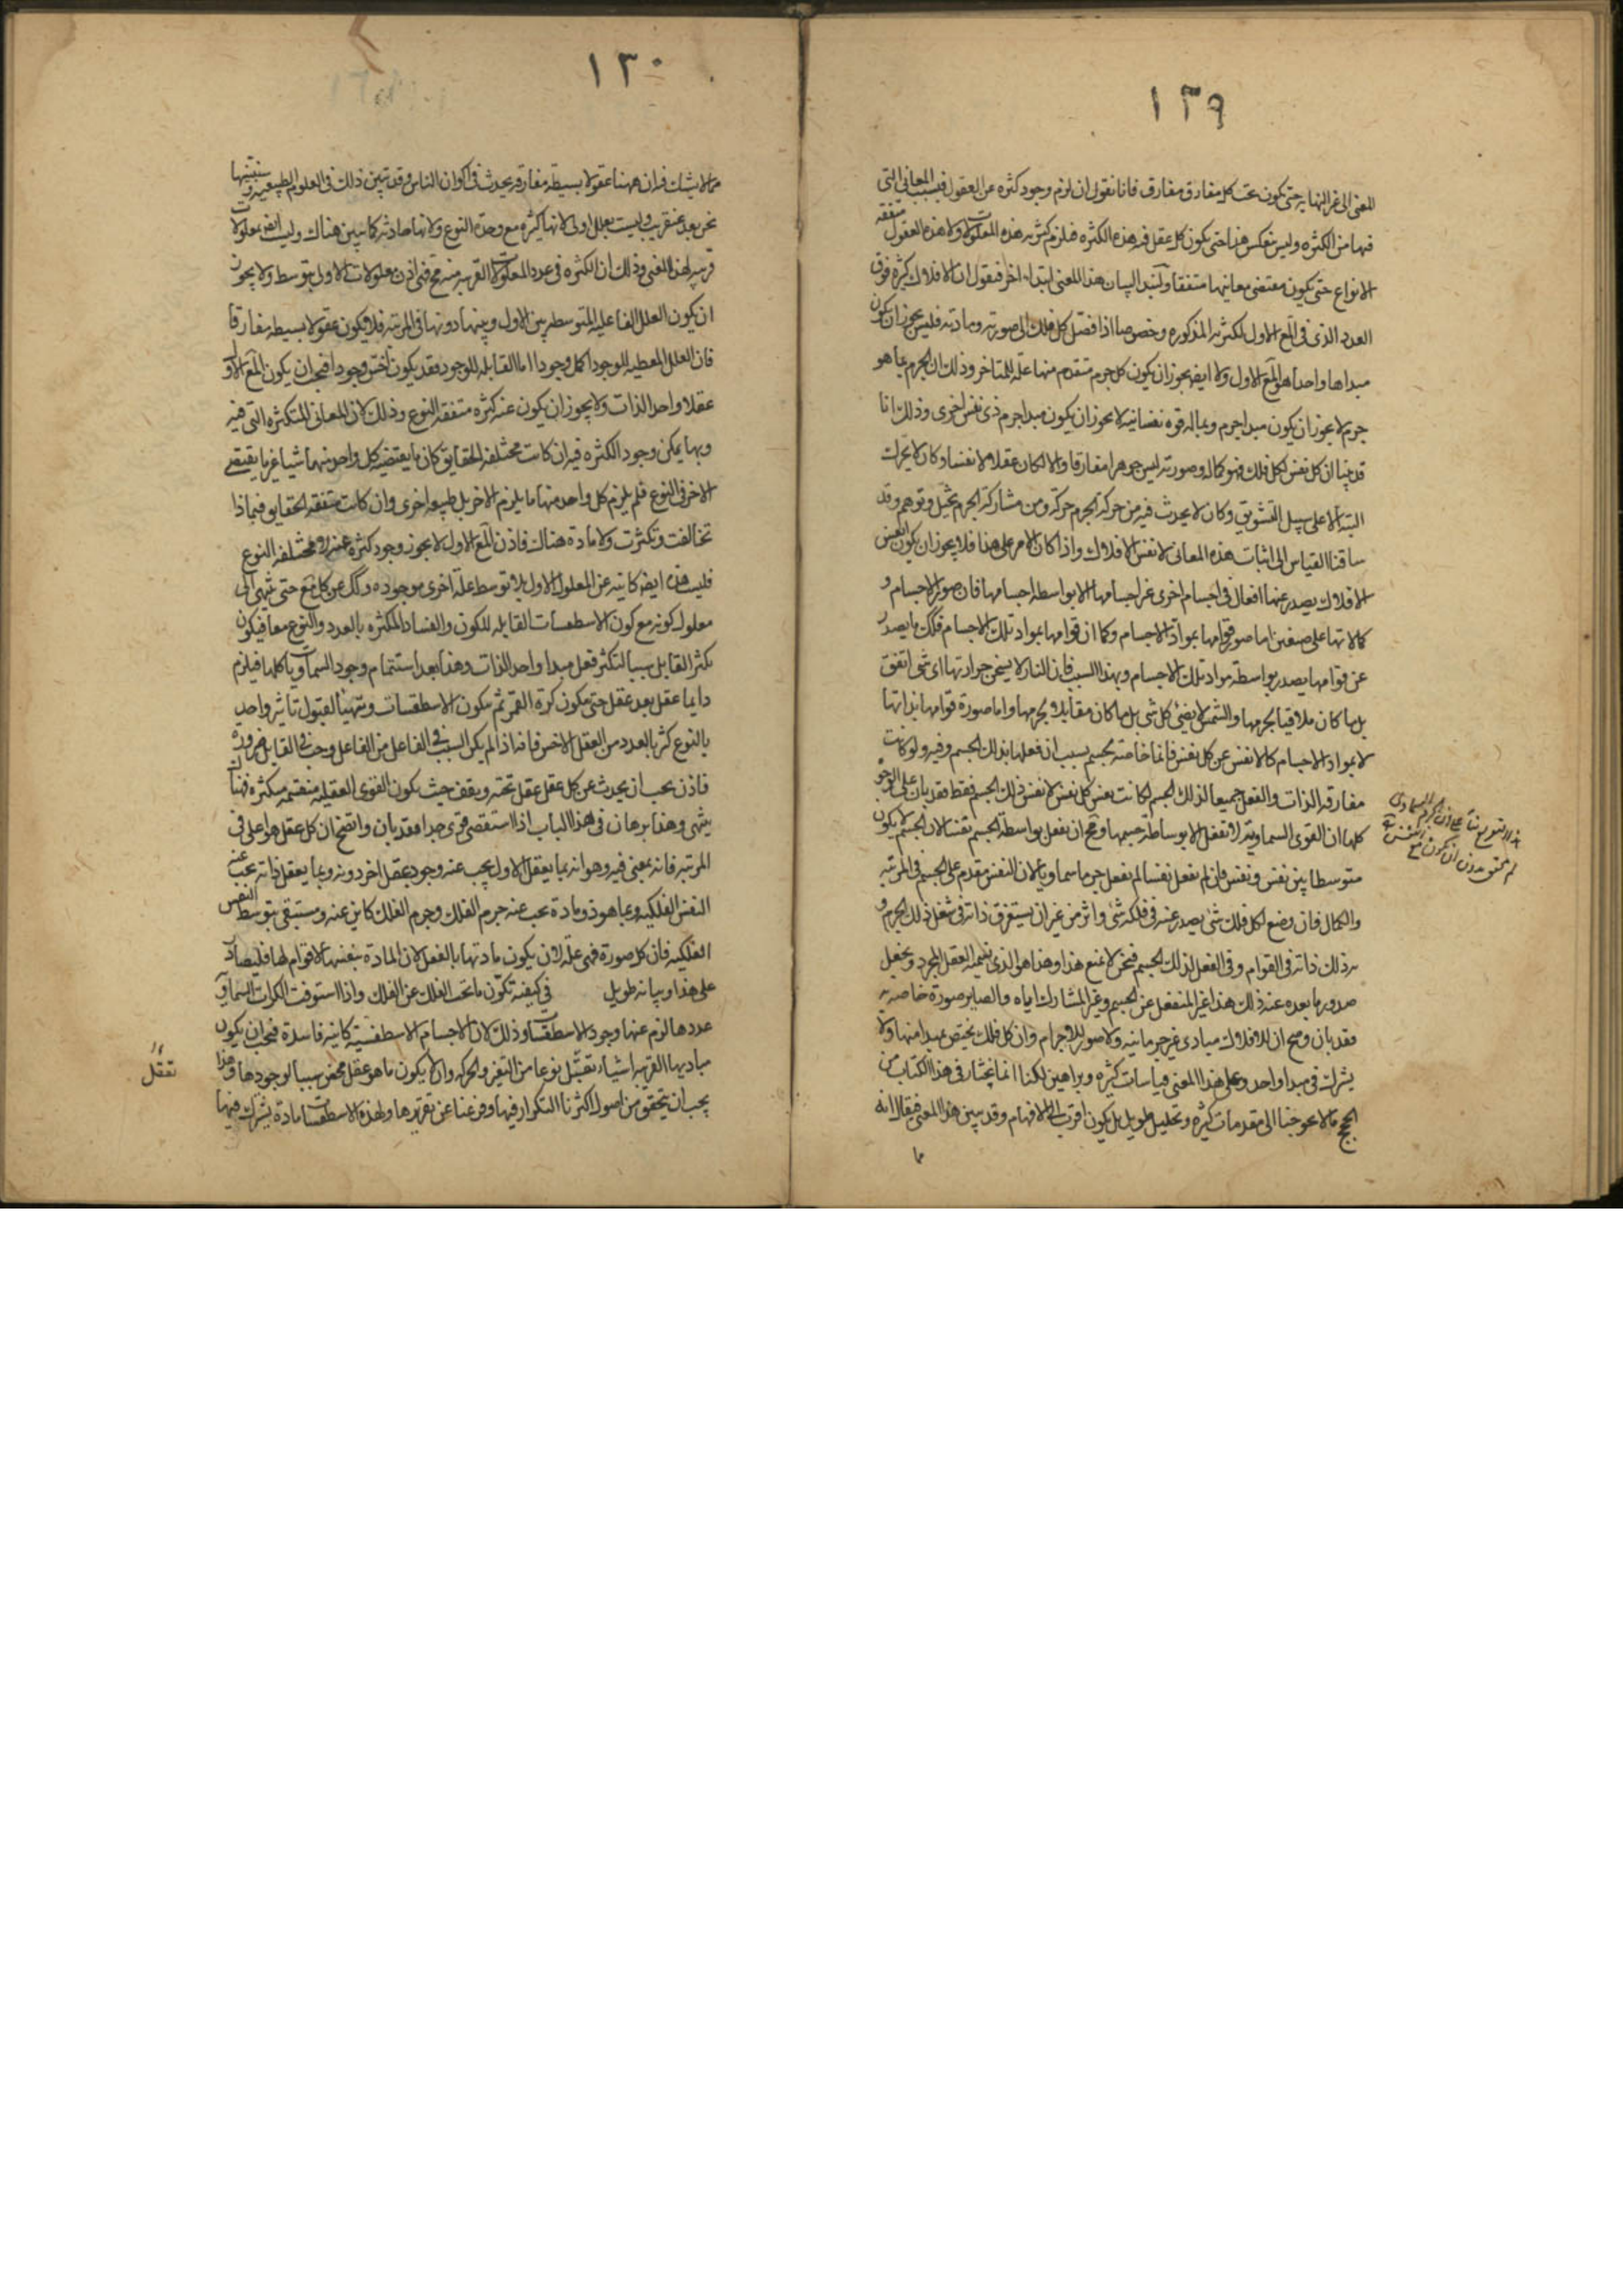 ١٣٩
المعنى الى غير النهايه حتى يكون تحت كل مفارق مفارق فانا نقول ان لزم وجود كثره عن العقول فبسبب المعانى التى
فيها من الكثره وليس ينعكس هذا حتى يكون كل عقل فيه هذه الكثره فيلزم كثرته هذه المعلولات ولا هذه العقول متفقه
الانواع حتى يكون مقتضى معانيها متفقا ولنبتد البيان هذا المعنى ابتداء اخر فنقول ان الافلاك كثيره فوق
العدد الذى فى المع الاول لكثرته المذكوره وخصوصا اذا فصل كل فلك الى صورته ومادته فليس يجوز ان يكون
مبداها واحدا هو المع الاول ولا ايضه يجوز ان يكون كل جرم متقدم منها علة للمتاخر وذلك ان الجرم بما هو
جرم لا يجوز ان يكون مبدا جرم وبما له قوه نفسانيه لا يجوز ان يكون مبدا جرم ذى نفس اخرى وذلك انا
قد بينا ان كل نفس لكل فلك فهو كماله وصورته ليس جوهرا مفارقا والا لكان عقلا لا نفسا وكان لا يتحرك
البته الا على سبيل التشويق وكان لا يحدث فيه من حركة الجرم حركة ومن مشاركة الجرم تخيل وتوهم وقد
ساقنا القياس الى اثبات هذه المعانى لانفس الافلاك واذا كان الامر على هذا فلا يجوز ان يكون انفس
الافلاك يصدر عنها افعال فى اجسام اخرى غير اجسامها الا بواسطه اجسامها فان صور الاجسام و
كمالاتها على صنفين اما صور قوامها بمواد الاجسام وكما ان قوامها بمواد تلك الاجسام فكك ما يصدر
عن قوامها يصدر بواسطة مواد تلك الاجسام وبهذا السبب فان النار لا يسخن حرارتها اى شى اتفق
بل ما كان ملاقيا لجرمها والشمس لا يضئ كل شى بل ما كان مقابلا لجرمها واما صورة قوامها بذاتها
لا بمواد الاجسام كالانفس عن كل نفس فانما خاصته بجسم بسبب ان فعلها بذلك الجسم وفيه ولو كانت
مفارقه الذات والفعل جميعا لذلك الجسم لكانت نفس كل نفس لا نفس ذلك الجسم فقط فقد بان على الوجوه
كلها ان القوى السماويه لا تفعل الا بوساطة جسمها ومح ان يفعل بواسطة الجسم نفسا لان الجسم لا يكون
متوسطا بين نفس ونفس فان لم نفعل نفسا لم نفعل جرما سماويا لان النفس مقدم على الجسم فى المرتبه
والكمال فان وضع لكل فلك شى يصدر عنه فى فلكه شى واثر من غير ان يستغرق ذاته فى شغل ذلك الجرم و
به ذلك ذاته فى القوام وفى الفعل لذلك الجسم فنحن لا نمنع هذا وهذا هو الذى نسميه العقل المجرد ونجعل
صدور ما بعده عنه ذلك هذا غير المنفعل عن الجسم وغير المشارك اياه والصاير صورة خاصه به
فقد بان وصح ان للافلاك مبادى غير جرمانيه ولا صور للاجرام وان كل فلك يختص بمبدا منها ولا
يشترك فى مبدا واحد وعلى هذا المعنى قياسات كثيره وبراهين لكنا انما نختار فى هذا الكتاب من
الحجج ما لا يحوجنا الى مقدمات كثيره وتحليل طويل بل يكون اقرب الى الافهام وقد يبين هذا المعنى فيقال انه
مما
١٣٠
مما لا يشك فيه ان ههنا عقولا بسيطه مفارقه يحدث فى اكوان الناس وقد تبين ذلك فى العلوم الطبيعيه وسنبينها
نحن بعد عنقريب وليست بعلل اولى لانها كثيره مع وحدة النوع ولانها حادثه كما تبين هناك وليست ايضه معلولات
قريبه لهذا المعنى وذلك ان الكثره فى عدد المعلولات القريبه منه مح فهى اذن معلولات الاول بتوسط ولا يجوز
ان يكون العلل الفاعليه المتوسطه بين الاول وبينها دونها فى المرتبه فلا يكون عقولا بسيطه مفارقا
فان العلل المعطيه للوجود اكمل وجودا اما القابله للوجود فقد يكون اخس وجودا فيجب ان يكون المع الاول
عقلا واحد الذات ولا يجوز ان يكون عنه كثره متفقه النوع وذلك لان المعانى المتكثره التى فيه
وبها يمكن وجود الكثره فيه ان كانت مختلفه الحقايق كان ما يقتضيه كل واحد منهما شيا غير ما يقتضى
الاخر فى النوع فلم يلزم كل واحد منها ما يلزم الاخر بل طبيعه اخرى وان كانت متفقه الحقايق فبماذا
تخالفت وتكثرت ولا ماده هناك فاذن المع الاول لا يجوز وجود كثره عنه الا مختلفه النوع
فليست هذه ايضه كاينه عن المعلول الاول بلا توسط علة اخرى موجوده وكك عن كل مع حتى ينتهى الى
معلول كونه مع كون الاسطقسات القابله للكون والفساد المتكثره بالعدد والنوع معا فيكون
تكثر القابل سببا لتكثر فعل مبدا واحد الذات وهذا بعد استتمام وجود السماويات كلها فيلزم
دايما عقل بعد عقل حتى يتكون كرة القمر ثم يتكون الاسطقسات ويتهيأ لقبول تاثير واحد
بالنوع كثير بالعدد من العقل الاخير فانه اذا لم يكن السبب فى الفاعل من الفاعل وجب فى القابل ضروره
فاذن يجب ان يحدث عن كل عقل عقل تحته ويقف حيث يكون القوى العقليه منقسمه متكثره فهناك
ينتهى وهذا برهان فى هذا الباب اذا استقصى قوى جدا فقد بان واتضح ان كل عقل هو اعلى فى
المرتبه فانه بمعنى فيه وهو انه بما يعقل الاول يجب عنه وجود عقل اخر دونه وبما يعقل ذاته يجب عنه
النفس الفلكيه وبما هو ذو مادة يجب عنه جرم الفلك وجرم الفلك كاين عنه ومستبقى بتوسط النفس
الفلكيه فان كل صورة فهى علة لان يكون مادتها بالفعل لان المادة بنفسها لا قوام لها فليصادر
على هذا وبيانه طويل فى كيفيه تكون ما تحت الفلك عن الفلك واذا استوفت الكرات السماوي
عددها لزم عنها وجود الاسطقسات وذلك لان الاجسام الاسطقسيه كاينه فاسدة فيجب ان يكون
مباديها القريبه اشياء تقبل نوعا من التغير والحركه وان لا يكون ما هو عقل محض سببا لوجودها وهذا
يجب ان يتحقق من اصول اكثرنا التكرار فيها وفرغنا عن تقريرها ولهذه الاسطقسات مادة يشترك فيها
تقبل